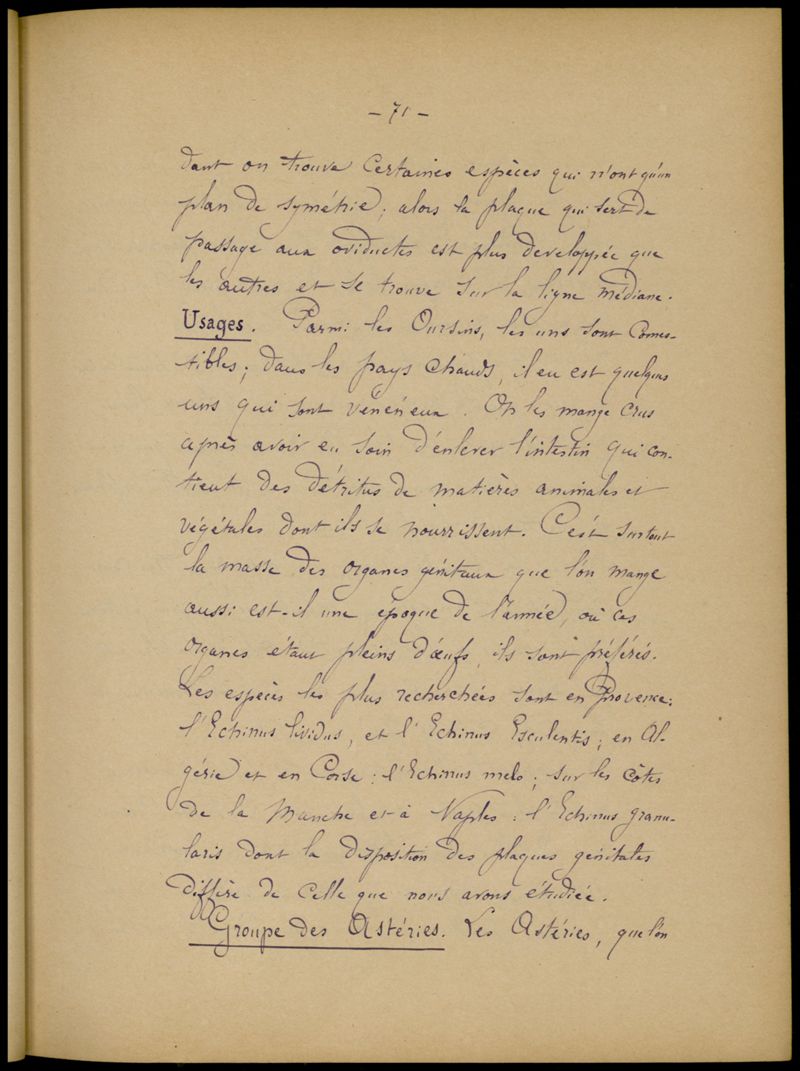 - 71 -
dant on trouve certaines espèces qui n'ont qu'un
plan de symétrie; alors la plaque qui sert de
passage aux oviductes est plus developpée que
les autres et se trouve sur la ligne médiane.
Usages. Parmi les Oursins, les uns sont comes-
tibles; dans les pays chauds, il en est quelques
uns qui sont vénéneux. On les mange crus
après avoir eu soin d'enlever l'intestin qui con-
tient des détritus de matières animales et
végétales dont ils se nourrissent. C'est surtout
la masse des organes génitaux que l'on mange
aussi est-il une époque de l'année, où ces
organes étant pleins d'œufs, ils sont préférés.
Les espèces les plus recherchées sont en Provence:
l'Echinus lividus, et l'Echinus Esculentis; en Al-
gérie et en Corse: l'Echinus melo; sur les côtes
de la Manche et à Naples: l'Echinus granu-
laris dont la disposition des plaques génitales
diffère de celle que nous avons étudiée.
Groupe des Astéries. Les Astéries, que l'on